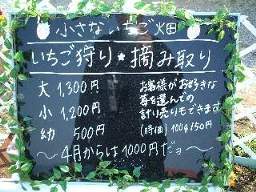 小さないちご畑
いちご狩り★摘み取り
大 1,300円
小 1,200円
幼 500円
お客様がお好きな
苺を選んでの
計り売りもできます
(時価) 100g 150円
〜4月からは1000円だョ〜